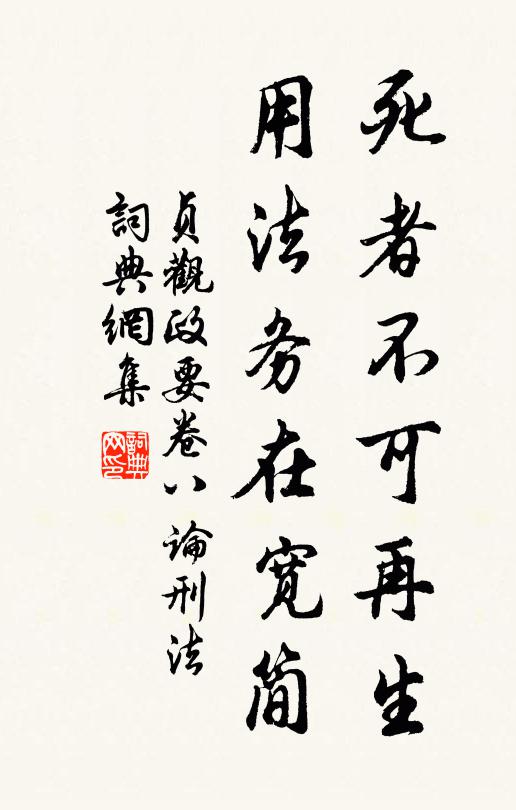 死者不可再生
用法务在宽简
貞觀政要卷八 論刑法
詞典網集
詞典網印